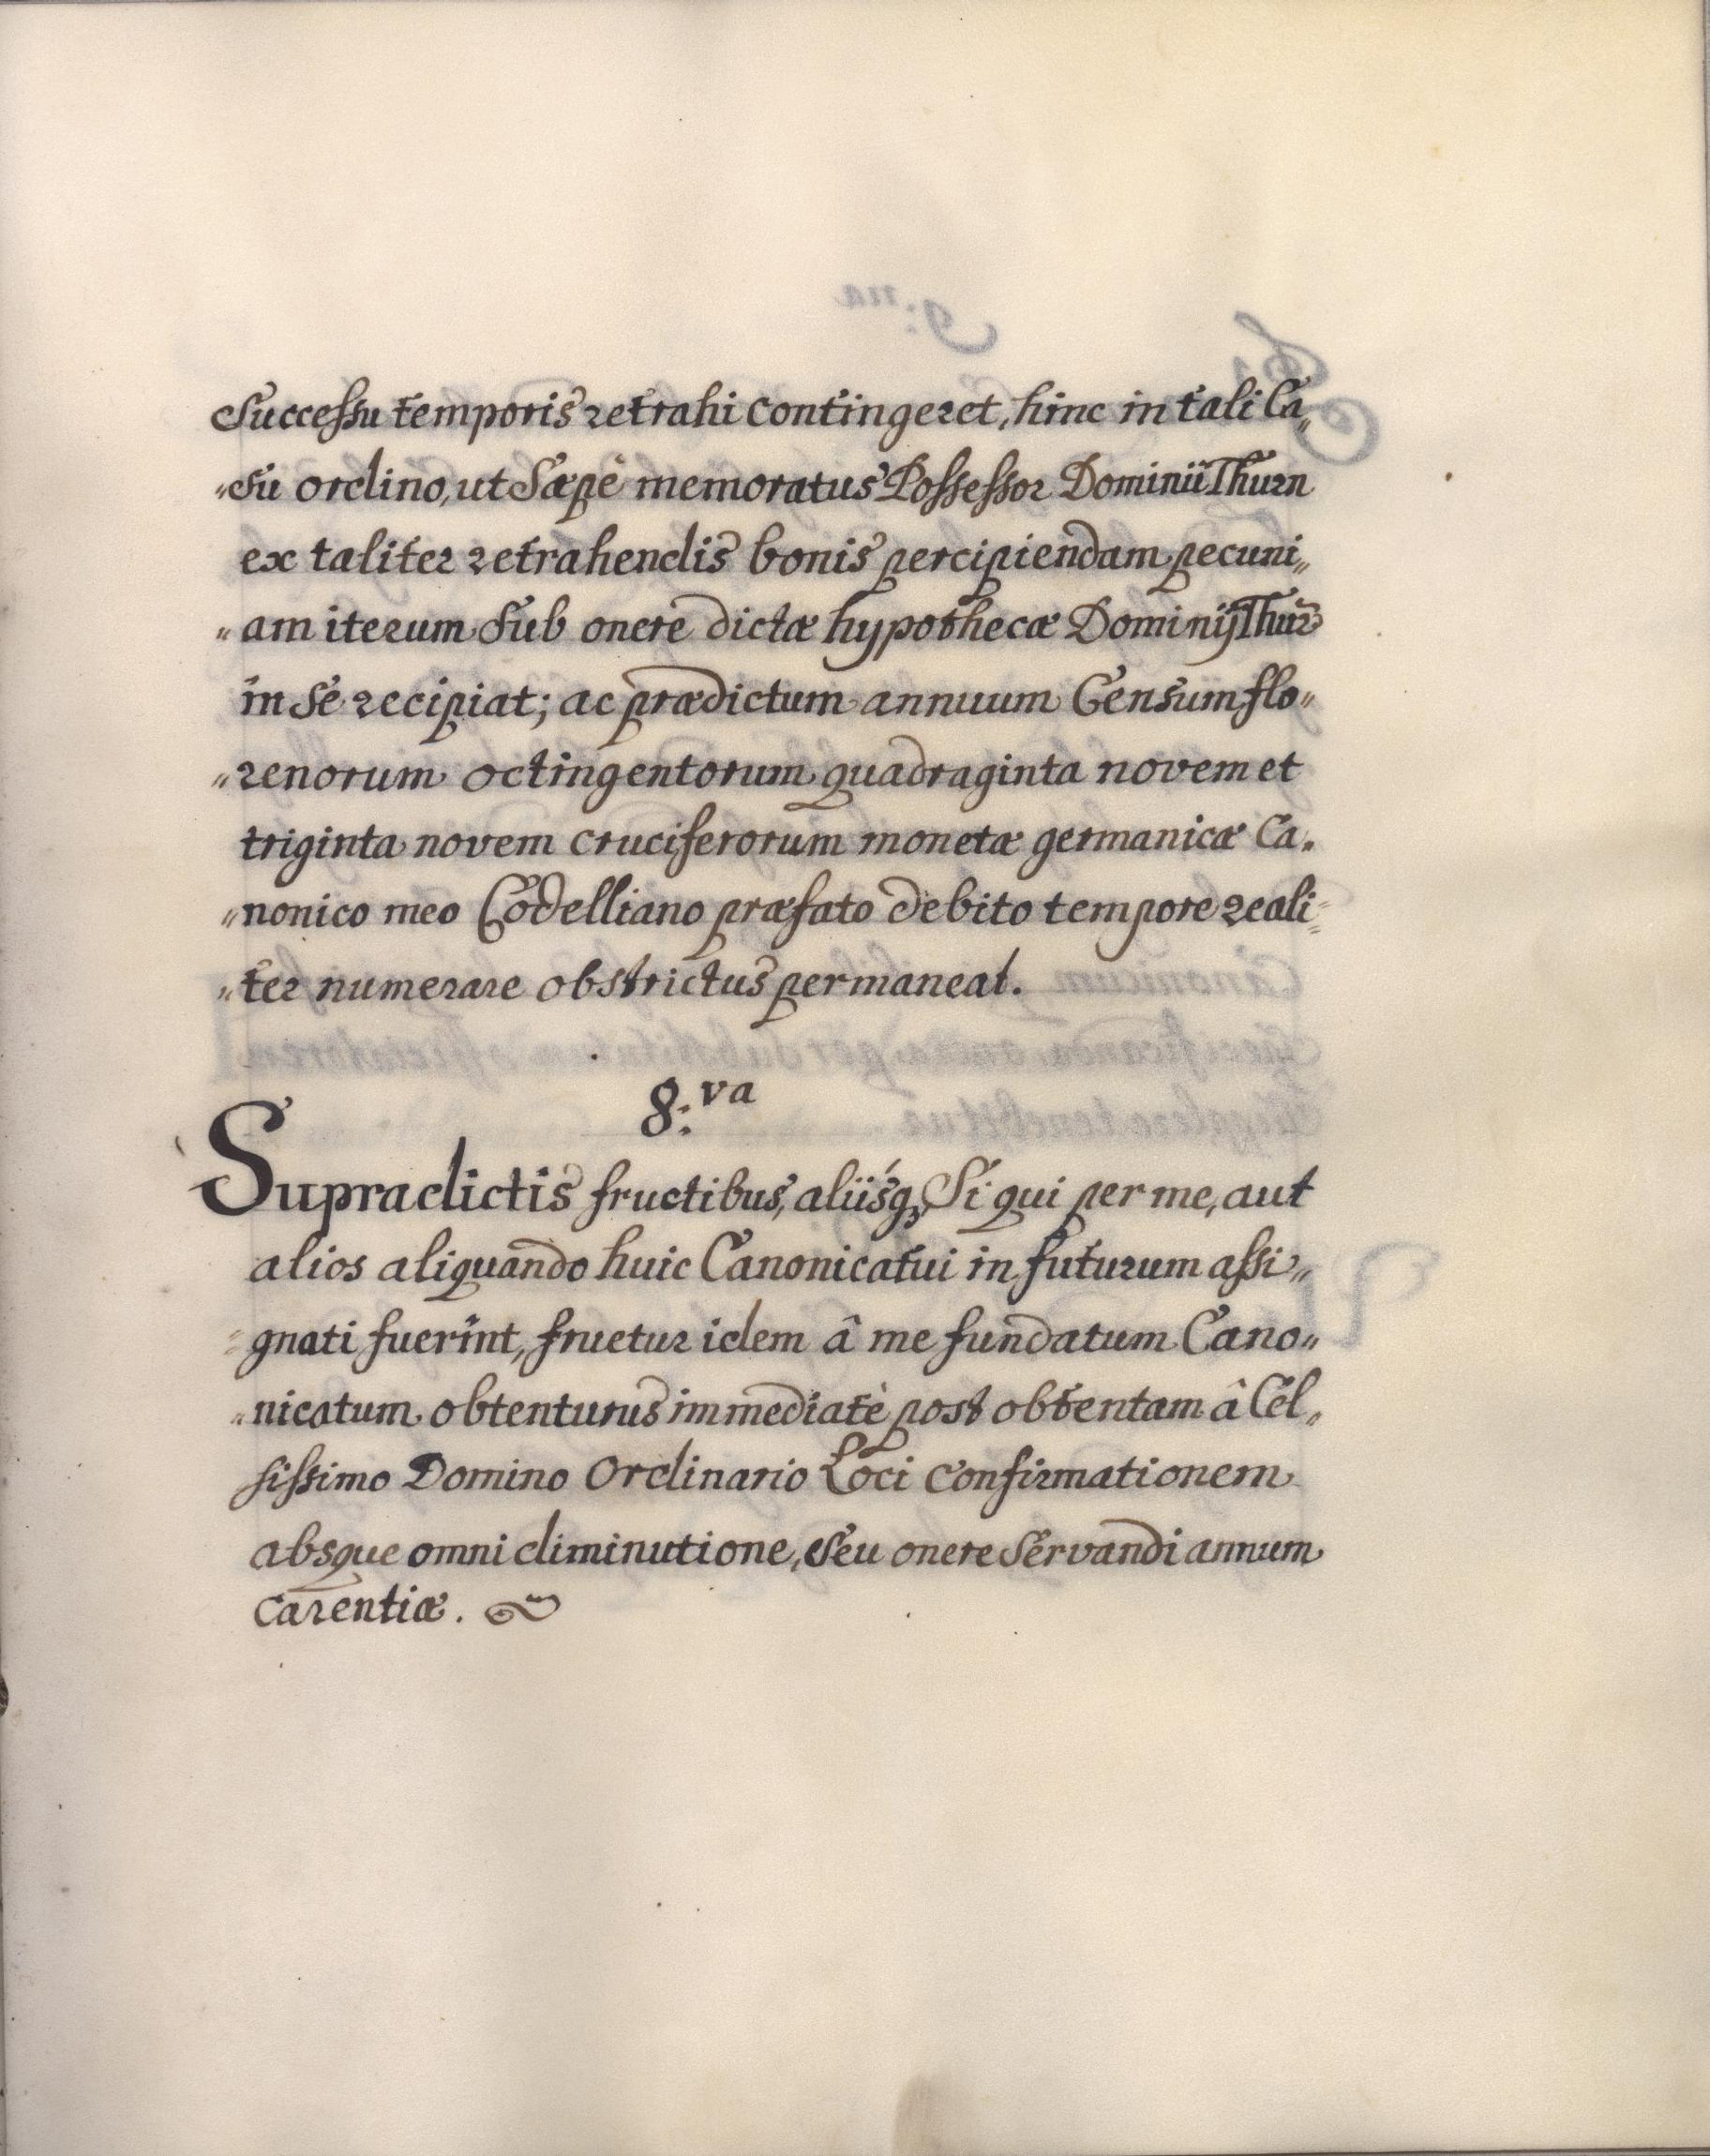 Successu temporis retrahi contingeret, hinc in tali Ca„
„su ordino, ut Sæpè memoratus Possessor Dominii Thurn
ex taliter retrahendis bonis percipiendam pecuni„
„am iterum Sub onere dictæ hypothecæ Dominij Thur̄
in Se recipiat; ac prædictum annuum Censum flo„
„renorum octingentorum quadraginta novem et
triginta novem cruciferorum monetæ germanicæ Ca„
„nonico meo Codelliano præfato debito tempore reali„
„ter numerare obstrictus permaneat.
8:va
Supradictis fructibus, aliisq3 Si qui per me, aut
alios aliquando huic Canonicatui in futurum assi„
„gnati fuerint, fruetur idem â me fundatum Cano„
„nicatum obtenturus immediatè post obtentam â Cel„
sissimo Domino Ordinario Loci confirmationem
absque omni diminutione, seu onere Servandi annum
carentiæ.